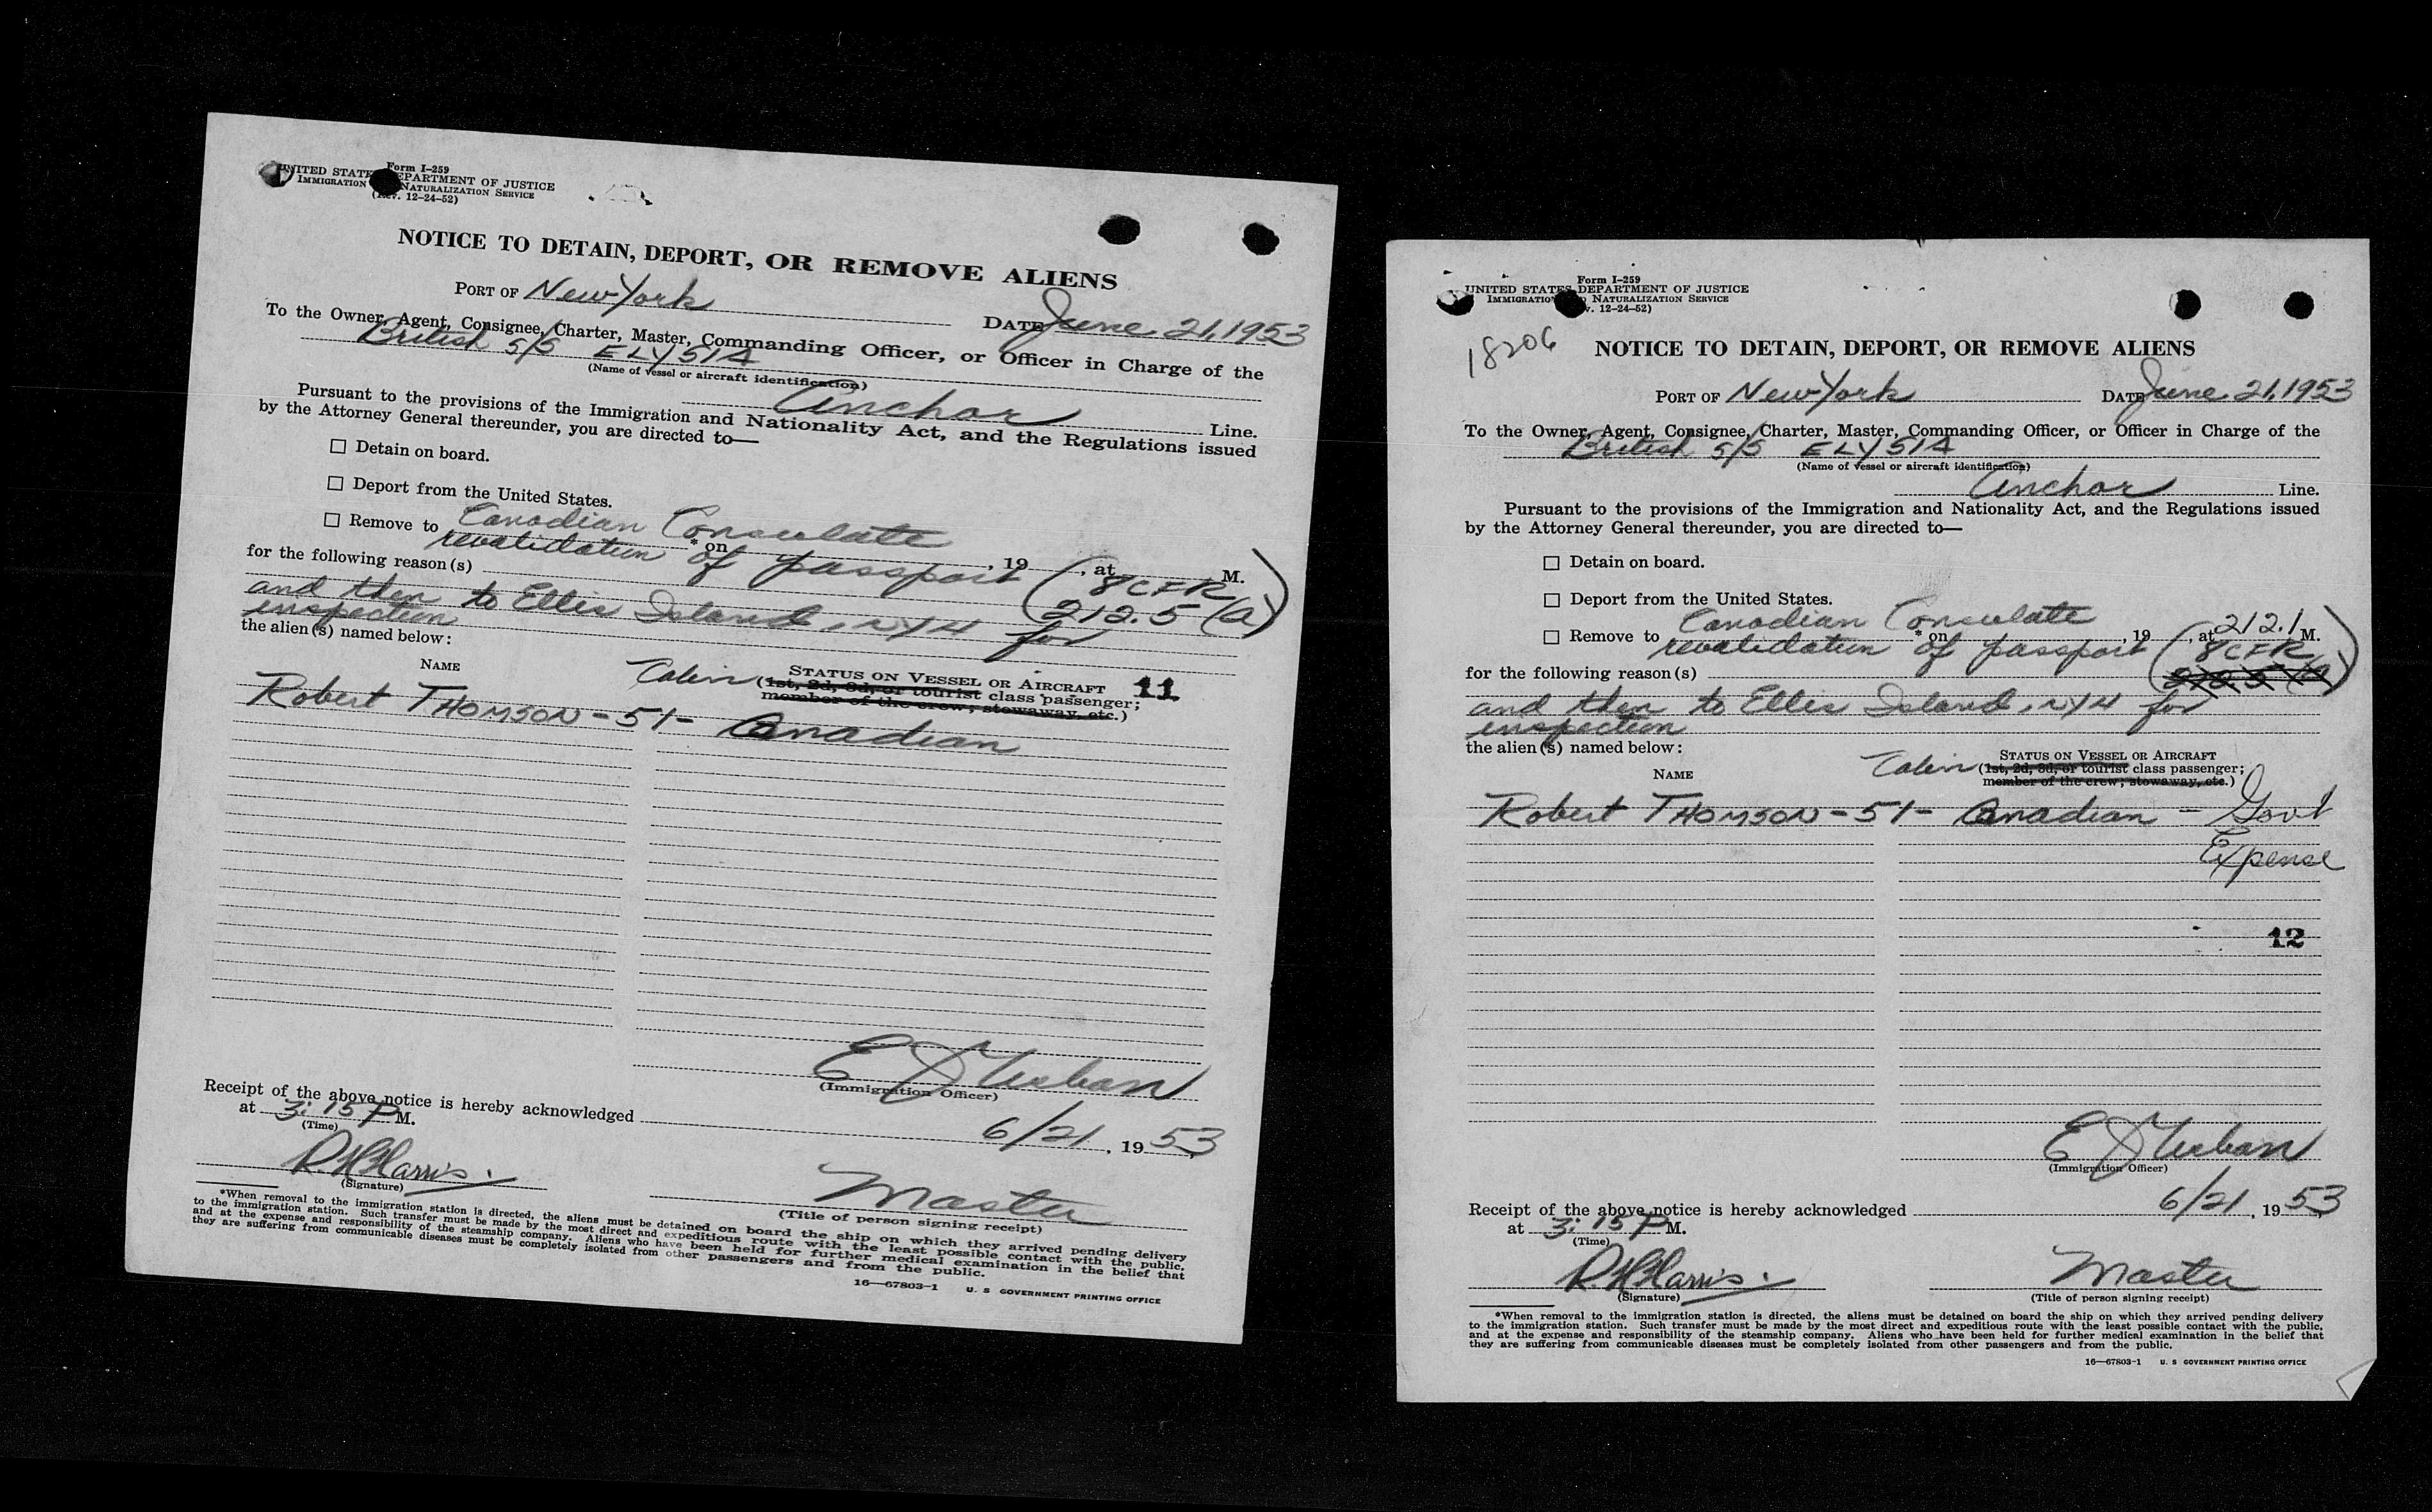 Form I-259
UNITED STATES DEPARTMENT OF JUSTICE
IMMIGRATION NATURALIZATION SERVICE
(Rev. 12-24-52)
NOTICE TO DETAIN, DEPORT, OR REMOVE ALIENS
PORT OF New York DATE June 21, 1953
To the Owner, Agent, Consignee, Charter, Master, Commanding Officer, or Officer in Charge of the
British S/S ELYSIA
(Name of vessel or aircraft identification)
Anchor Line.
Pursuant to the provisions of the Immigration and Nationality Act, and the Regulations issued
by the Attorney General thereunder, you are directed to—
☐ Detain on board.
☐ Deport from the United States.
☐ Remove to Canadian Consulate * on , 19 , at M.
for the following reason(s) revalidation of passport (8 CFR
212.5 (a))
and then to Ellis Island, NYH for
inspection
the alien(s) named below:
NAME Cabin STATUS ON VESSEL OR AIRCRAFT 11
(1st, 2d, 3d, or tourist class passenger;
member of the crew; stowaway, etc.)
Robert THOMSON - 51 - Canadian
E Urban
(Immigration Officer)
Receipt of the above notice is hereby acknowledged 6/21, 1953,
at 3:15 P M.
(Time)
R. H. Harris Master
(Signature) (Title of person signing receipt)
*When removal to the immigration station is directed, the aliens must be detained on board the ship on which they arrived pending delivery
to the immigration station. Such transfer must be made by the most direct and expeditious route with the least possible contact with the public,
and at the expense and responsibility of the steamship company. Aliens who have been held for further medical examination in the belief that
they are suffering from communicable diseases must be completely isolated from other passengers and from the public.
16—67803-1 U. S GOVERNMENT PRINTING OFFICE
Form I-259
UNITED STATES DEPARTMENT OF JUSTICE
IMMIGRATION NATURALIZATION SERVICE
(Rev. 12-24-52)
18206
NOTICE TO DETAIN, DEPORT, OR REMOVE ALIENS
PORT OF New York DATE June 21, 1953
To the Owner, Agent, Consignee, Charter, Master, Commanding Officer, or Officer in Charge of the
British S/S ELYSIA
(Name of vessel or aircraft identification)
Anchor Line.
Pursuant to the provisions of the Immigration and Nationality Act, and the Regulations issued
by the Attorney General thereunder, you are directed to—
☐ Detain on board.
☐ Deport from the United States.
☐ Remove to Canadian Consulate * on , 19 , at 212.1 M.
for the following reason(s) revalidation of passport (8 CFR
212.5 (a))
and then to Ellis Island, NYH for
inspection
the alien(s) named below:
NAME Cabin STATUS ON VESSEL OR AIRCRAFT
(1st, 2d, 3d, or tourist class passenger;
member of the crew; stowaway, etc.)
Robert THOMSON - 51 - Canadian - Govt
Expense
12
E Urban
(Immigration Officer)
Receipt of the above notice is hereby acknowledged 6/21, 1953,
at 3:15 P M.
(Time)
R. H. Harris Master
(Signature) (Title of person signing receipt)
*When removal to the immigration station is directed, the aliens must be detained on board the ship on which they arrived pending delivery
to the immigration station. Such transfer must be made by the most direct and expeditious route with the least possible contact with the public,
and at the expense and responsibility of the steamship company. Aliens who have been held for further medical examination in the belief that
they are suffering from communicable diseases must be completely isolated from other passengers and from the public.
16—67803-1 U. S GOVERNMENT PRINTING OFFICE